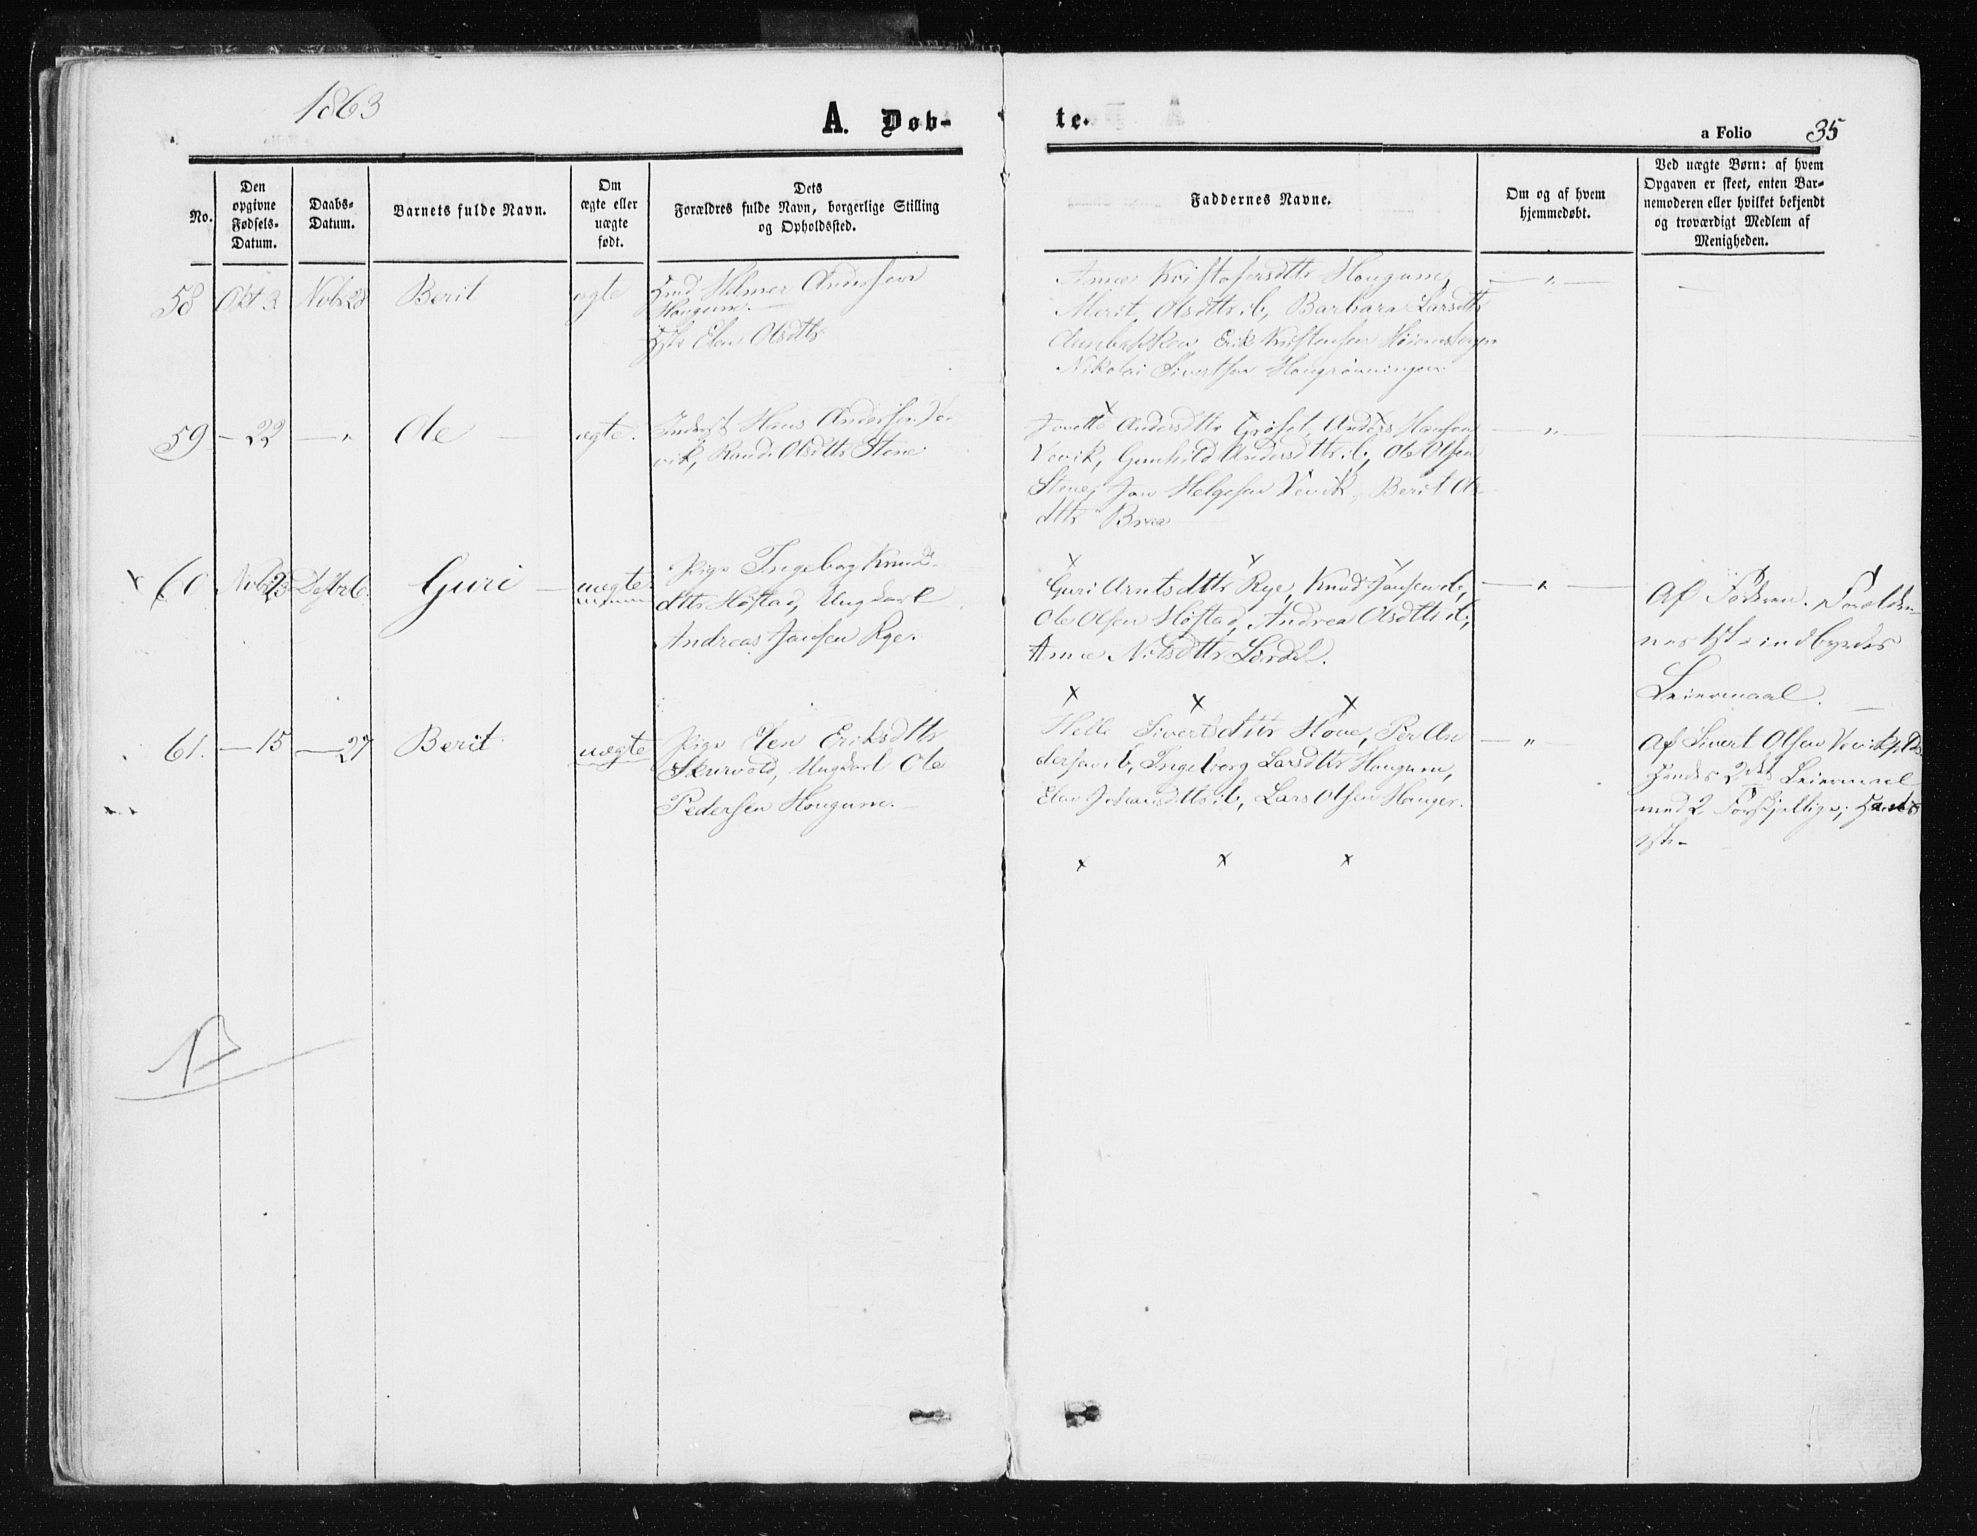 1863
A. Døb-
te.
a Folio 35
No.
Den opgivne Fødsels-Datum.
Daabs-Datum.
Barnets fulde Navn.
Om ægte eller uægte født.
Dets Forældres fulde Navn, borgerlige Stilling og Opholdssted.
Faddernes Navne.
Om og af hvem hjemmedøbt.
Ved uægte Børn: af hvem Opgaven er skeet, enten Barnemoderen eller hvilket bekjendt og troværdigt Medlem af Menigheden.
58 Okt 3 Nvbr 28 Berit ægte
Helmer Andersen
Haugum.
Elen Olsdtr
Anne Kristofersdtr Haugum,
Merit Olsdtr ib, Barbara Larsdtr
Erik Kristensen
Nikolai Sivertsen Haugrønningen
59 — 22 — " Ole — ægte.
Inderst Hans Andersen Ve-
vik, Randi Olsdtr Stene
Andersdtr Grøset, Anders Hansen
Vevik, Gunhild Andersdtr ib, Ole Olsen
Stene, Jon Helgesen Vevik, Berit Ols-
dtr Bræ
60 Nvbr 23 Dcbr 6 Guri — uægte
Pige Ingeborg Knuds-
dtr Høstad, Ungkarl
Andreas Jansen Rye.
Guri Arntsdtr Rye, Knud Jansen ib,
Ole Olsen Høstad, Andrea Olsdtr ib,
Anne Nilsdtr
Af Faderen. Forældre-
nes 1ste indbyrdes
Leiermaal.
61. — 15 — 27 Berit uægte
Pige Elen Eriksdtr
Skurvold, Ungkarl Ole
Pedersen Haugum.
Helle Sivertsdtr Hove, Per An-
dersen ib, Ingeborg Larsdtr Haugum,
Elen Johansdtr ib, Lars Olsen Hauger.
Af Sivert Olsen
Hendes 2det Leiermaal
med 2 Forskjellige; Hans
1ste